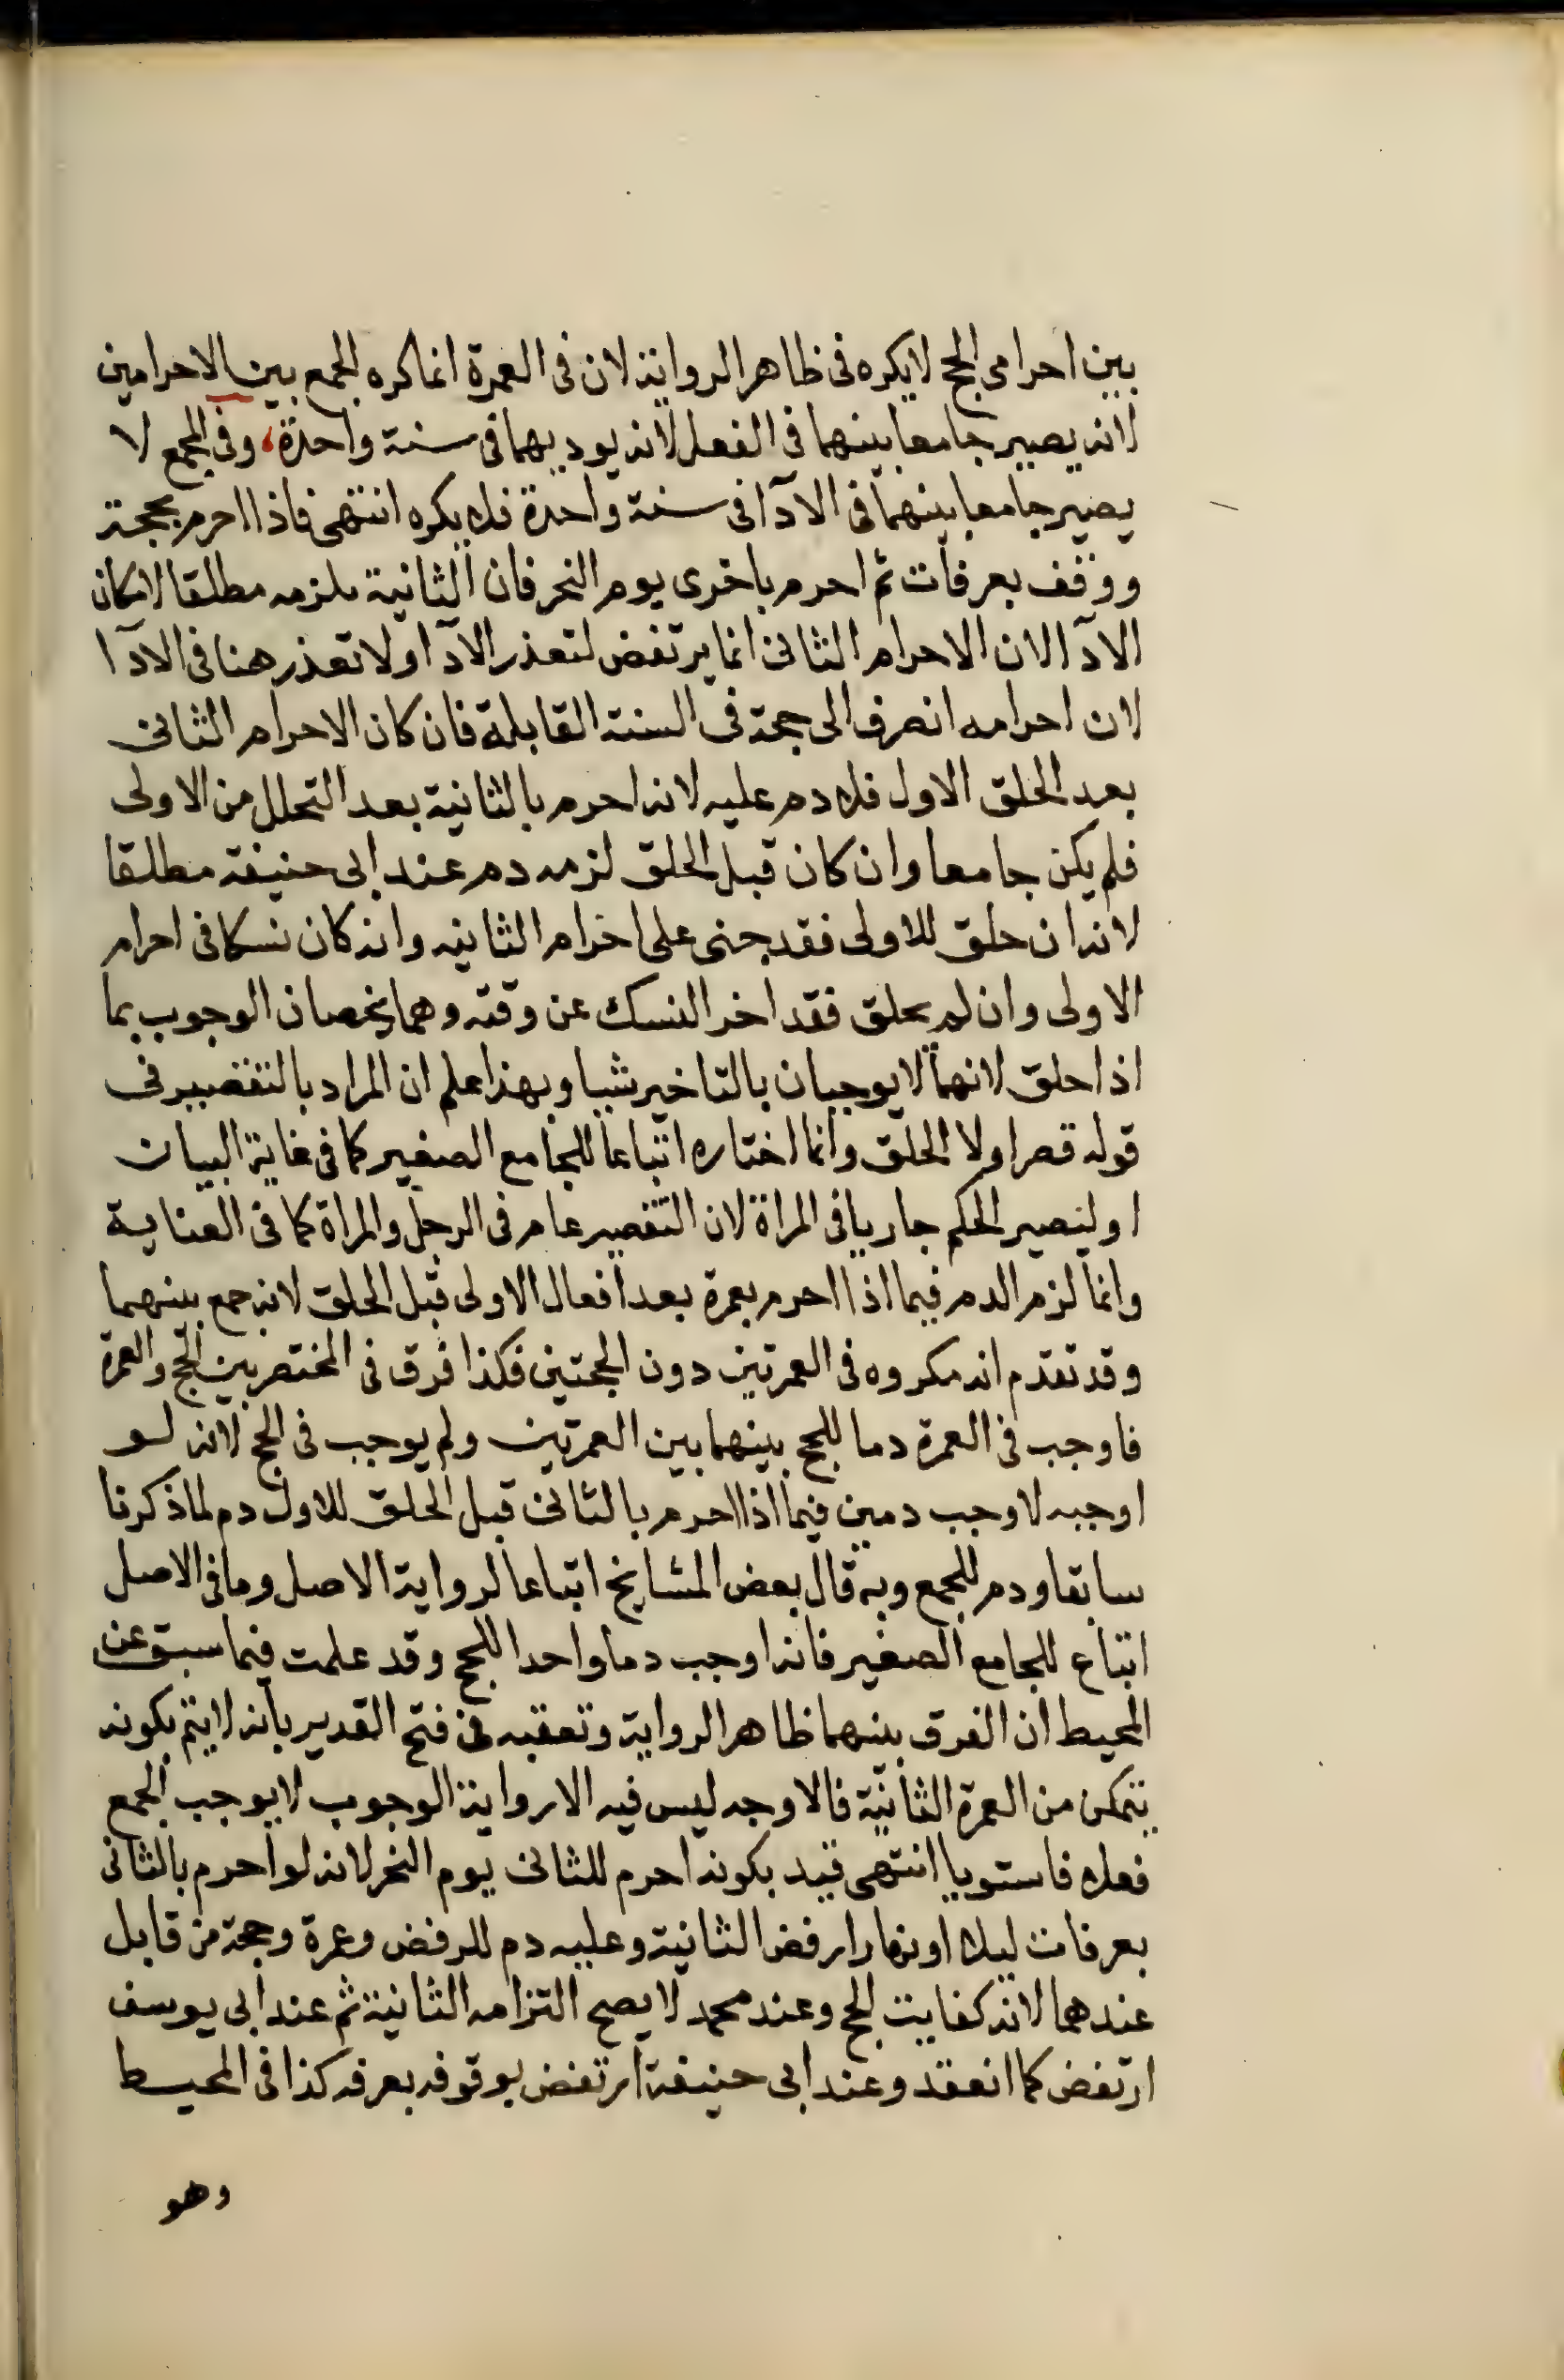 بين احرامى الحج لايكره فى ظاهر الرواية لان فى العمرة انما كره الجمع بين الاحرامين
لانه يصير جامعا بينهما فى الفعل لانه يوديهما فى سنة واحدة، وفى الجمع لا
يصير جامعا بينهما فى الادآ فى سنة واحدة فلا يكره انتهى فاذا احرم بحجة
ووقف بعرفات ثم احرم باخرى يوم النحر فان الثانية تلزمه مطلقا لامكان
الادآ لان الاحرام الثانى انما يرتفض لتعذر الادآ ولا تعذر هنا فى الادآ
لان احرامه انصرف الى حجة فى السنة القابلة فان كان الاحرام الثانى
بعد الحلق الاول فلا دم عليه لانه احرم بالثانية بعد التحلل من الاولى
فلم يكن جامعا وان كان قبل الحلق لزمه دم عند ابى حنيفة مطلقا
لانه ان حلق للاولى فقد جنى على احرام الثانيه وانه كان نسكا فى احرام
الاولى وان لم يحلق فقد اخر النسك عن وقته وهما يخصان الوجوب بما
اذا حلق لانهما لا يوجبان بالتاخير شيا وبهذا علم ان المراد بالتقصير فى
قوله قصر اولا الحلق وانما اختاره اتباعا للجامع الصغير كما فى غاية البيان
او ليصير الحكم جاريا فى المراة لان التقصير عام فى الرجل والمراة كما فى العناية
وانما لزم الدم فيما اذا احرم بعمرة بعد افعال الاولى قبل الحلق لانه جمع بينهما
وقد تقدم انه مكروه فى العمرتين دون الحجتين فكذا فرق فى المختصر بين الحج والعمرة
فاوجب فى العمرة دما للجمع بينهما بين العمرتين ولم يوجب فى الحج لانه لو
اوجبه لاوجب دمين فيما اذا احرم بالثانى قبل الحلق للاول دم لما ذكرنا
سابقا ودم للجمع وبه قال بعض المشايخ اتباعا لرواية الاصل وما فى الاصل
اتباع للجامع الصغير فانه اوجب دما واحدا للحج وقد علمت فيما سبق عن
المحيط ان الفرق بينهما ظاهر الرواية وتعقبه فى فتح القدير بانه لايتم بكونه
يتمكن من العمرة الثانية فالاوجه ليس فيه الا رواية الوجوب لا يوجب الجمع
فعلا فاستويا انتهى قيد بكونه احرم للثانى يوم النحر لانه لو احرم بالثانى
بعرفات ليلا او نهارا رفض الثانية وعليه دم للرفض وعمرة وحجة من قابل
عندهما لانه كفايت الحج وعند محمد لا يصح التزامه الثانية ثم عند ابى يوسف
ارتفض كما انعقد وعند ابى حنيفة ارتفض بوقوفه بعرفه كذا فى المحيط
وهو